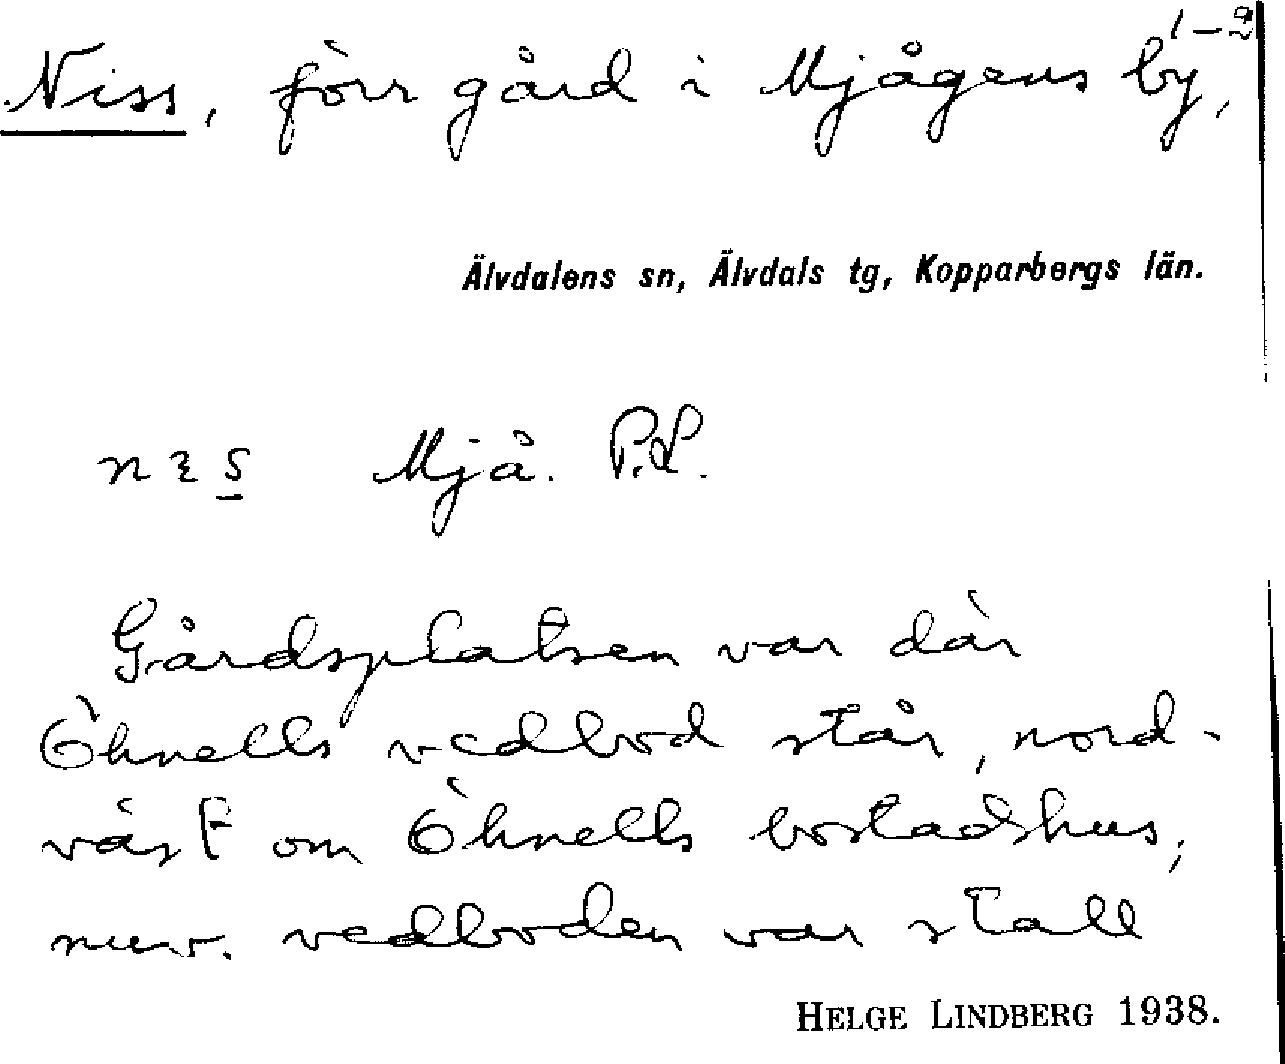 1–2
Niss, förr gård i Mjågens by,
Älvdalens sn, Älvdals tg, Kopparbergs län.
Mjå. P.L.
Gårdsplatsen var där
Öhnells vedbod står, nord-
väst om Öhnells bostadshus,
nuv. vedboden var stall
HELGE LINDBERG 1938.